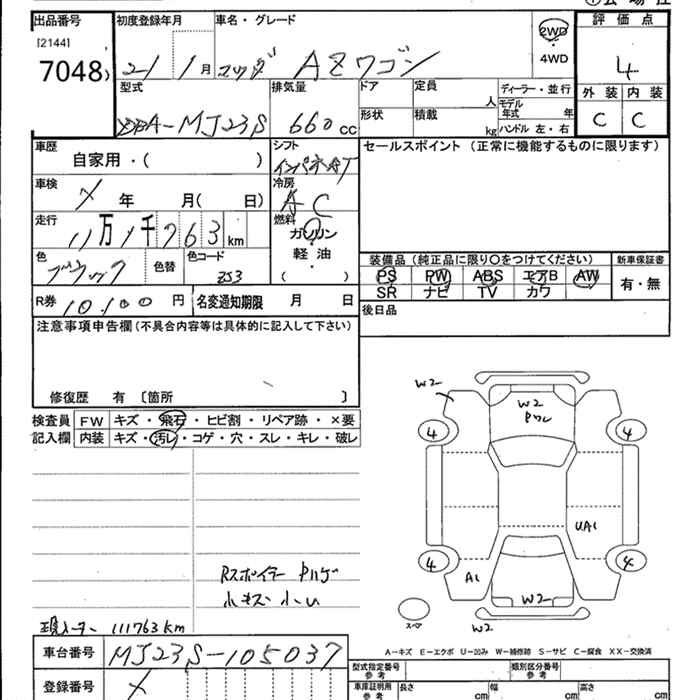 出品番号 初度登録年月 車名・グレード 評価点
[2144]
7048 21 1月 マツダ AZワゴン 2WD ・ 4WD 4
外装 内装
型式 排気量 ドア 定員 人 ディーラー・並行 C C
DBA-MJ23S 660cc 形状 積載 kg モデル年式 年
ハンドル 左・右
車歴 シフト セールスポイント (正常に機能するものに限ります)
自家用・( ) インパネAT
車検 冷房
年 月( 日) AC
走行 燃料
11万1千763km ガソリン
軽油
色 色替 色コード ( )
ブラック ZJ3
装備品 (純正品に限り○をつけてください) 新車保証書
PS PW ABS エアB AW 有・無
SR ナビ TV カワ
R券 10,100円 名変通知期限 月 日
後日品
注意事項申告欄 (不具合内容等は具体的に記入して下さい)
修復歴 有 〔箇所 〕
検査員 FW キズ・飛石・ヒビ割・リペア跡・×要
記入欄 内装 キズ・汚レ・コゲ・穴・スレ・キレ・破レ
W2
W2
4 4
UA1
4 4
A1
W2
スペア W2
Rスポイラー ハゲ
小キズ 小凹
現メーター 111763km
A-キズ E-エクボ U-凹み W-補修跡 S-サビ C-腐食 XX-交換済
車台番号 MJ23S-105037
型式指定番号 参考 類別区分番号 参考
登録番号
車庫証明用 参考 長さ cm 幅 cm 高さ cm